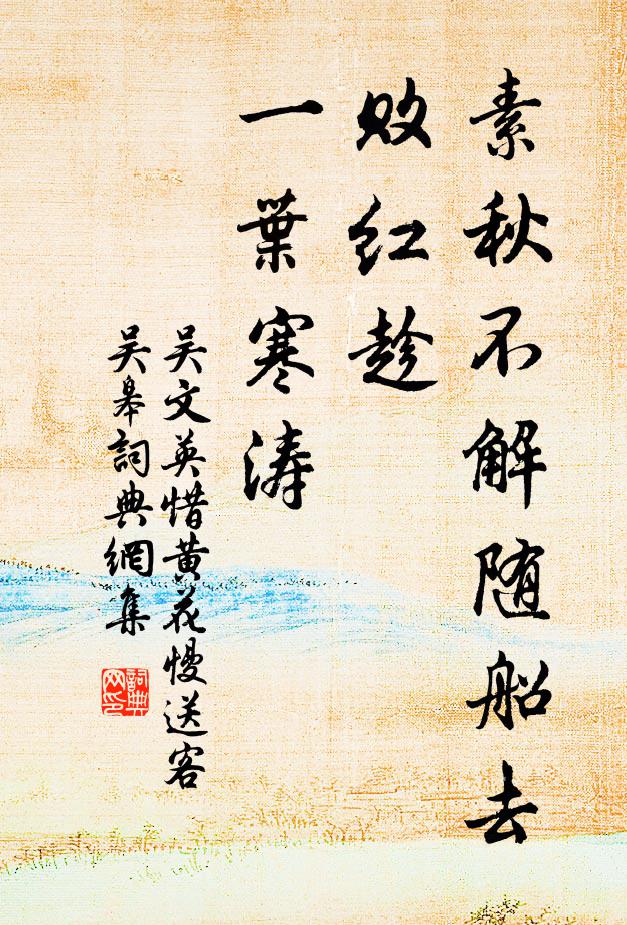 素秋不解随船去
败红趁
一葉寒涛
吴文英惜黄花慢送客
吴皋詞典網集
詞典网印